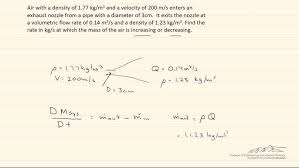 Air with a density of 1.77 kg/m³ and a velocity of 200 m/s enters an
exhaust nozzle from a pipe with a diameter of 3cm. It exits the nozzle at
a volumetric flow rate of 0.14 m³/s and a density of 1.23 kg/m³. Find the
rate in kg/s at which the mass of the air is increasing or decreasing.
ρ = 1.77 kg/m³ Q = 0.14 m³/s
V = 200 m/s ρ = 1.23 kg/m³
D = 3cm
DMsys/Dt = ṁout − ṁin ṁout = ρQ
= (1.23 kg/m³)